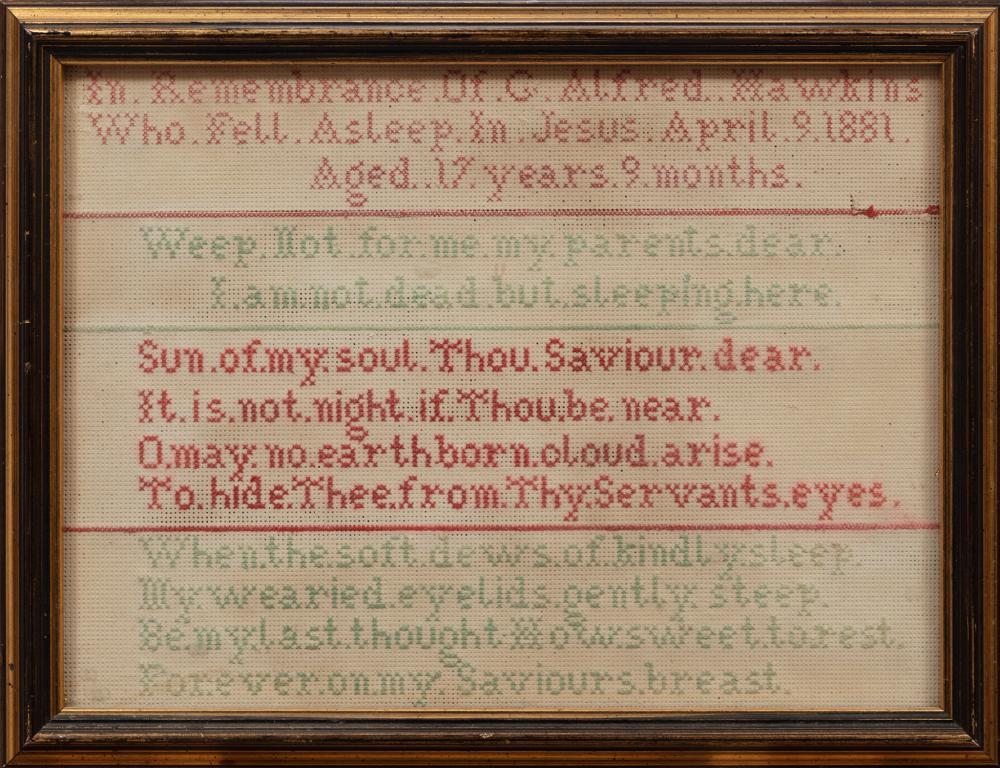 In. Remembrance. Of. G. Alfred. Hawkins
Who. Fell. Asleep. In. Jesus. April. 9. 1881.
Aged. 17. years. 9. months.
Weep. Not. for. me. my. parents. dear.
I. am. not. dead. but. sleeping. here.
Sun. of. my. soul. Thou. Saviour. dear.
It. is. not. night. if. Thou. be. near.
O. may. no. earthborn. cloud. arise.
To. hide Thee. from. Thy. Servants. eyes.
When. the. soft. dews. of. kindly. sleep.
My. wearied. eyelids. gently. steep.
Be. my. last. thought How. sweet. to. rest.
Forever. on. my. Saviours. breast.